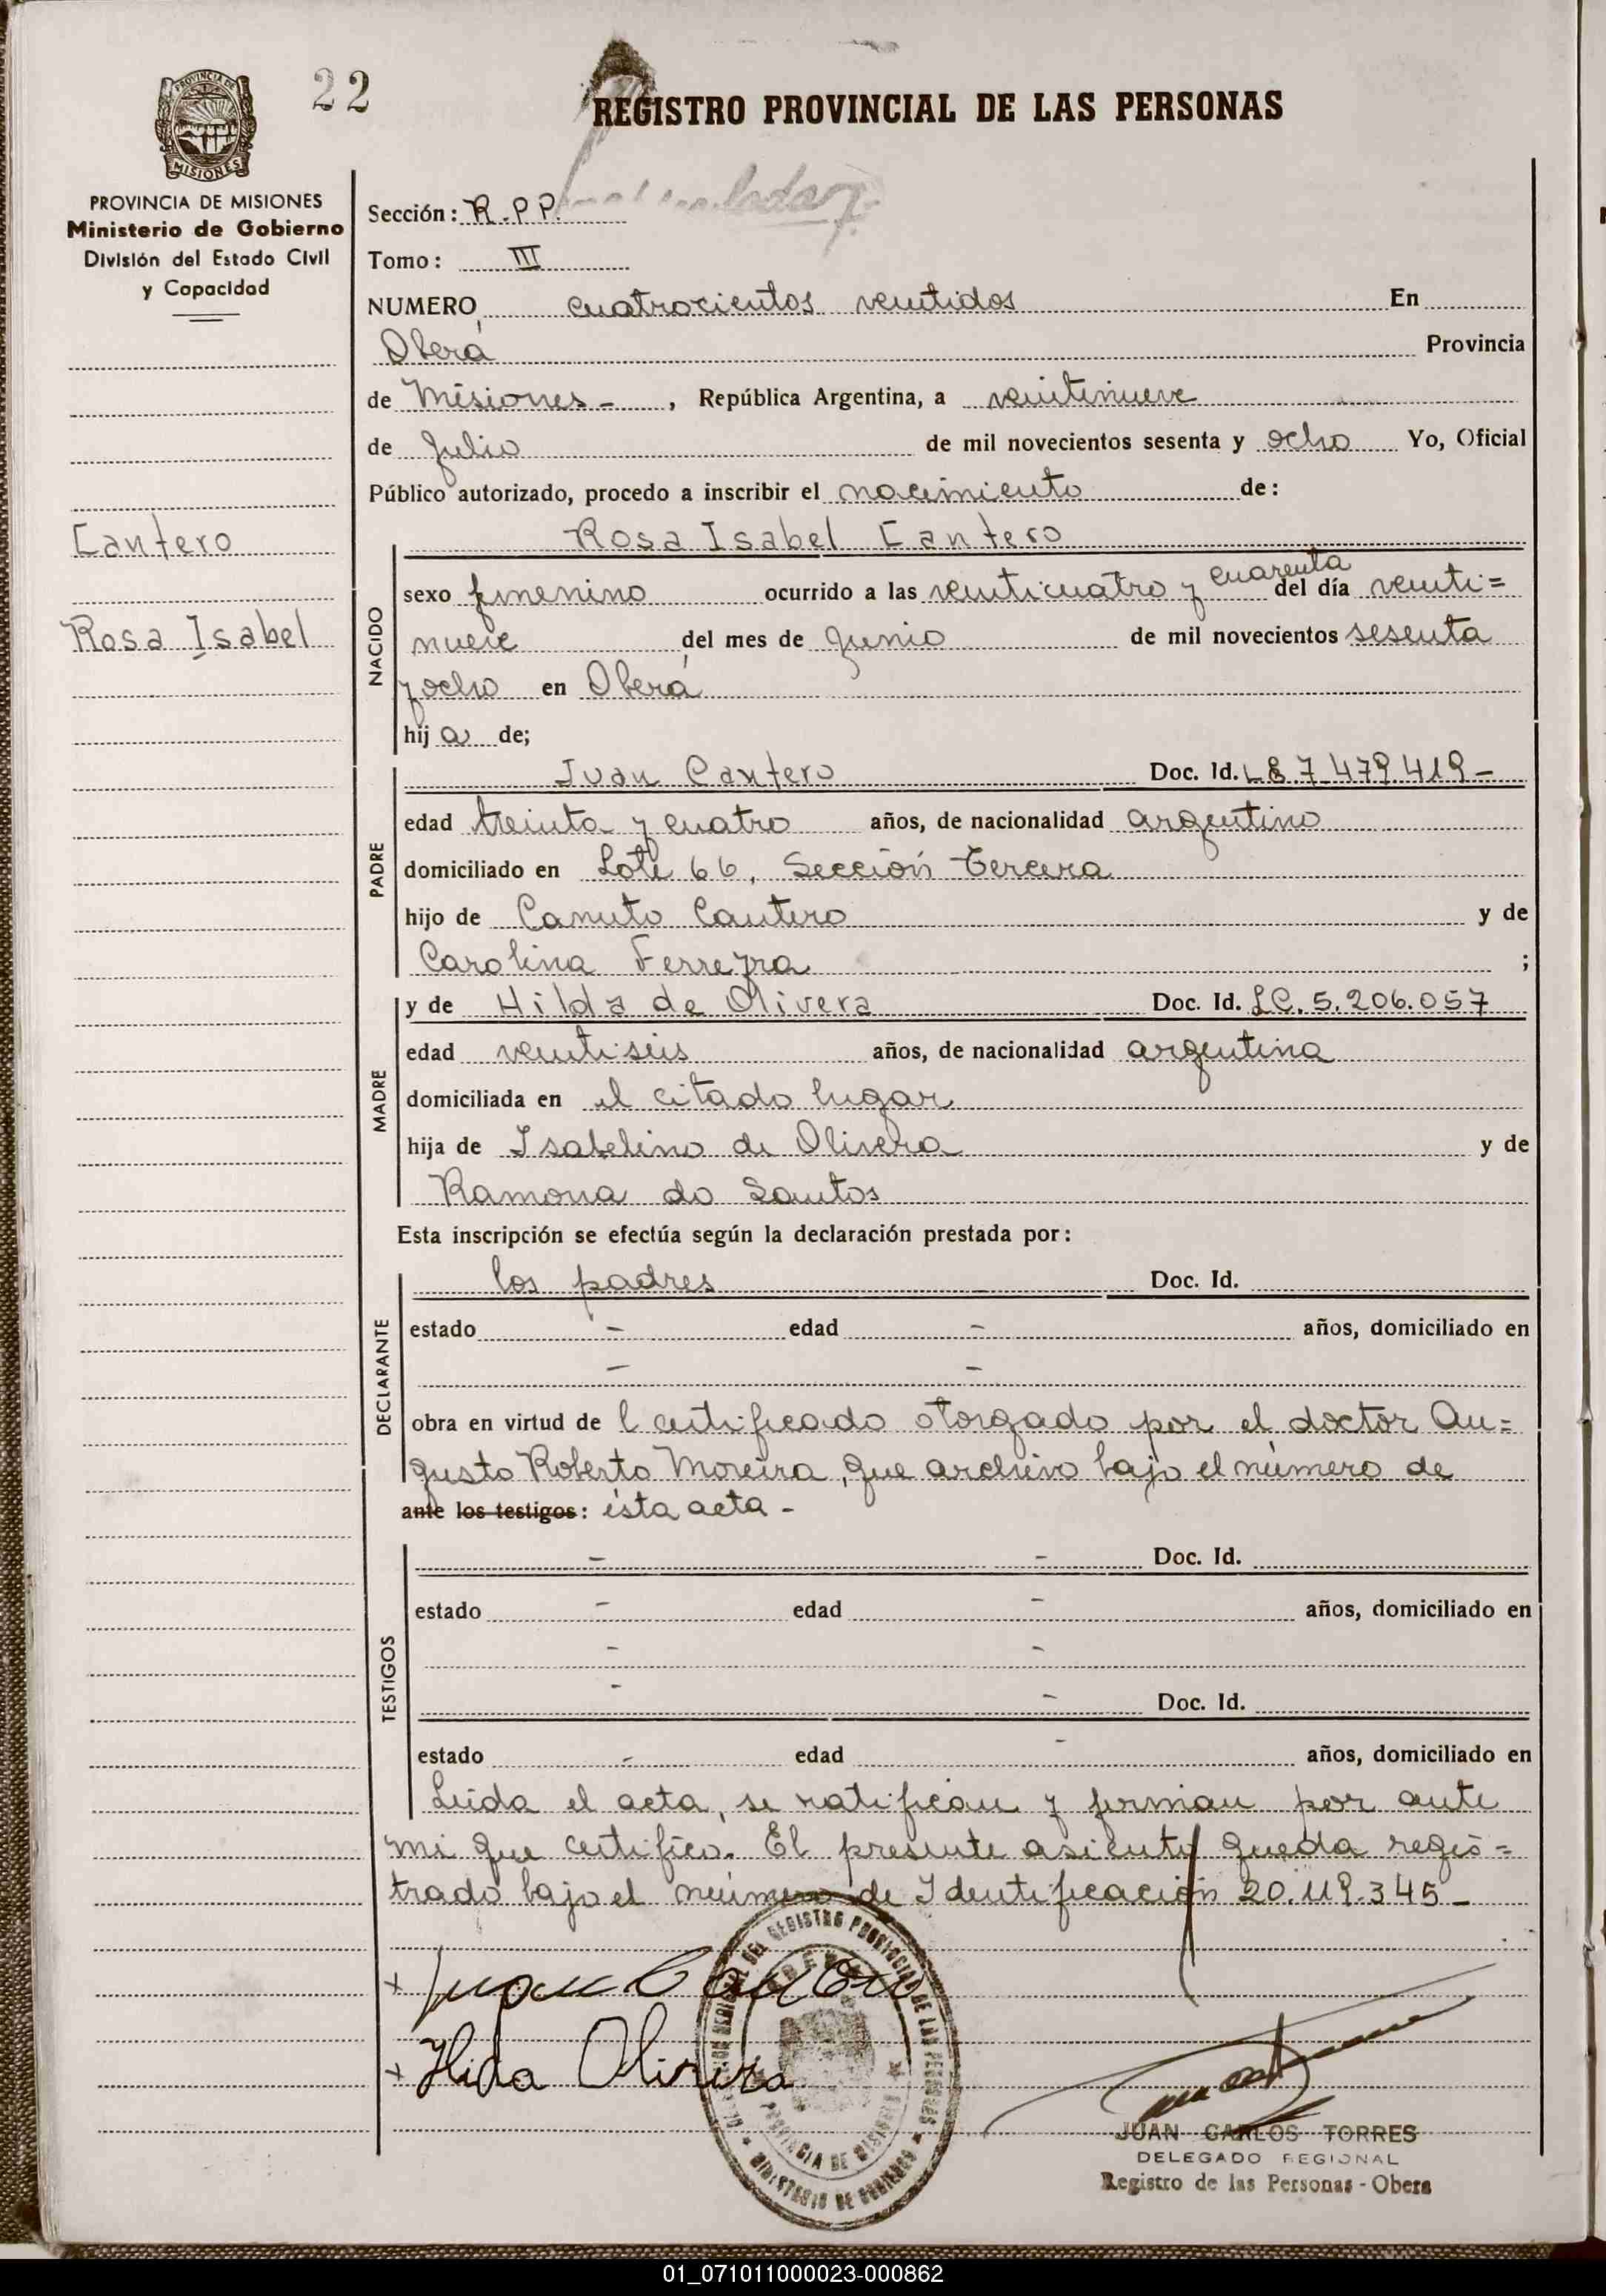 22
REGISTRO PROVINCIAL DE LAS PERSONAS
PROVINCIA DE
MISIONES
PROVINCIA DE MISIONES
Ministerio de Gobierno
División del Estado Civil
y Capacidad
Cantero
Rosa Isabel
Sección: R.P.P.
Tomo: III
NUMERO cuatrocientos veintidos En
Oberá Provincia
de Misiones - , República Argentina, a veintinueve
de Julio de mil novecientos sesenta y ocho Yo, Oficial
Público autorizado, procedo a inscribir el nacimiento de:
Rosa Isabel Cantero
NACIDO
sexo femenino ocurrido a las venticuatro y cuarenta del día venti=
nueve del mes de Junio de mil novecientos sesenta
y ocho en Oberá
hija de;
PADRE
Juan Cantero Doc. Id. LE 7.479.419-
edad treinta y cuatro años, de nacionalidad argentino
domiciliado en Lote 66, Sección Tercera
hijo de Canuto Cantero y de
Carolina Ferreyra ;
MADRE
y de Hilda de Olivera Doc. Id. LC. 5.206.057
edad ventiseis años, de nacionalidad argentina
domiciliada en el citado lugar
hija de Isabelino de Olivera y de
Ramona do Santos
Esta inscripción se efectúa según la declaración prestada por:
DECLARANTE
los padres Doc. Id.
estado - edad - años, domiciliado en
- -
obra en virtud de l certificado otorgado por el doctor Au=
gusto Roberto Moreira, que archivo bajo el número de
ante los testigos: ésta acta -
TESTIGOS
- - Doc. Id.
estado - edad - años, domiciliado en
- -
- - Doc. Id.
estado - edad - años, domiciliado en
Leída el acta, se ratifican y firman por ante
mi que certifico. El presente asiento queda regis=
trado bajo el número de Identificación 20.119.345-
+ Juan Cantero
+ Hilda Olivera
PROVINCIA DE MISIONES
MINISTERIO DE GOBIERNO
JUAN CARLOS TORRES
DELEGADO REGIONAL
Registro de las Personas - Obera
01_071011000023-000862